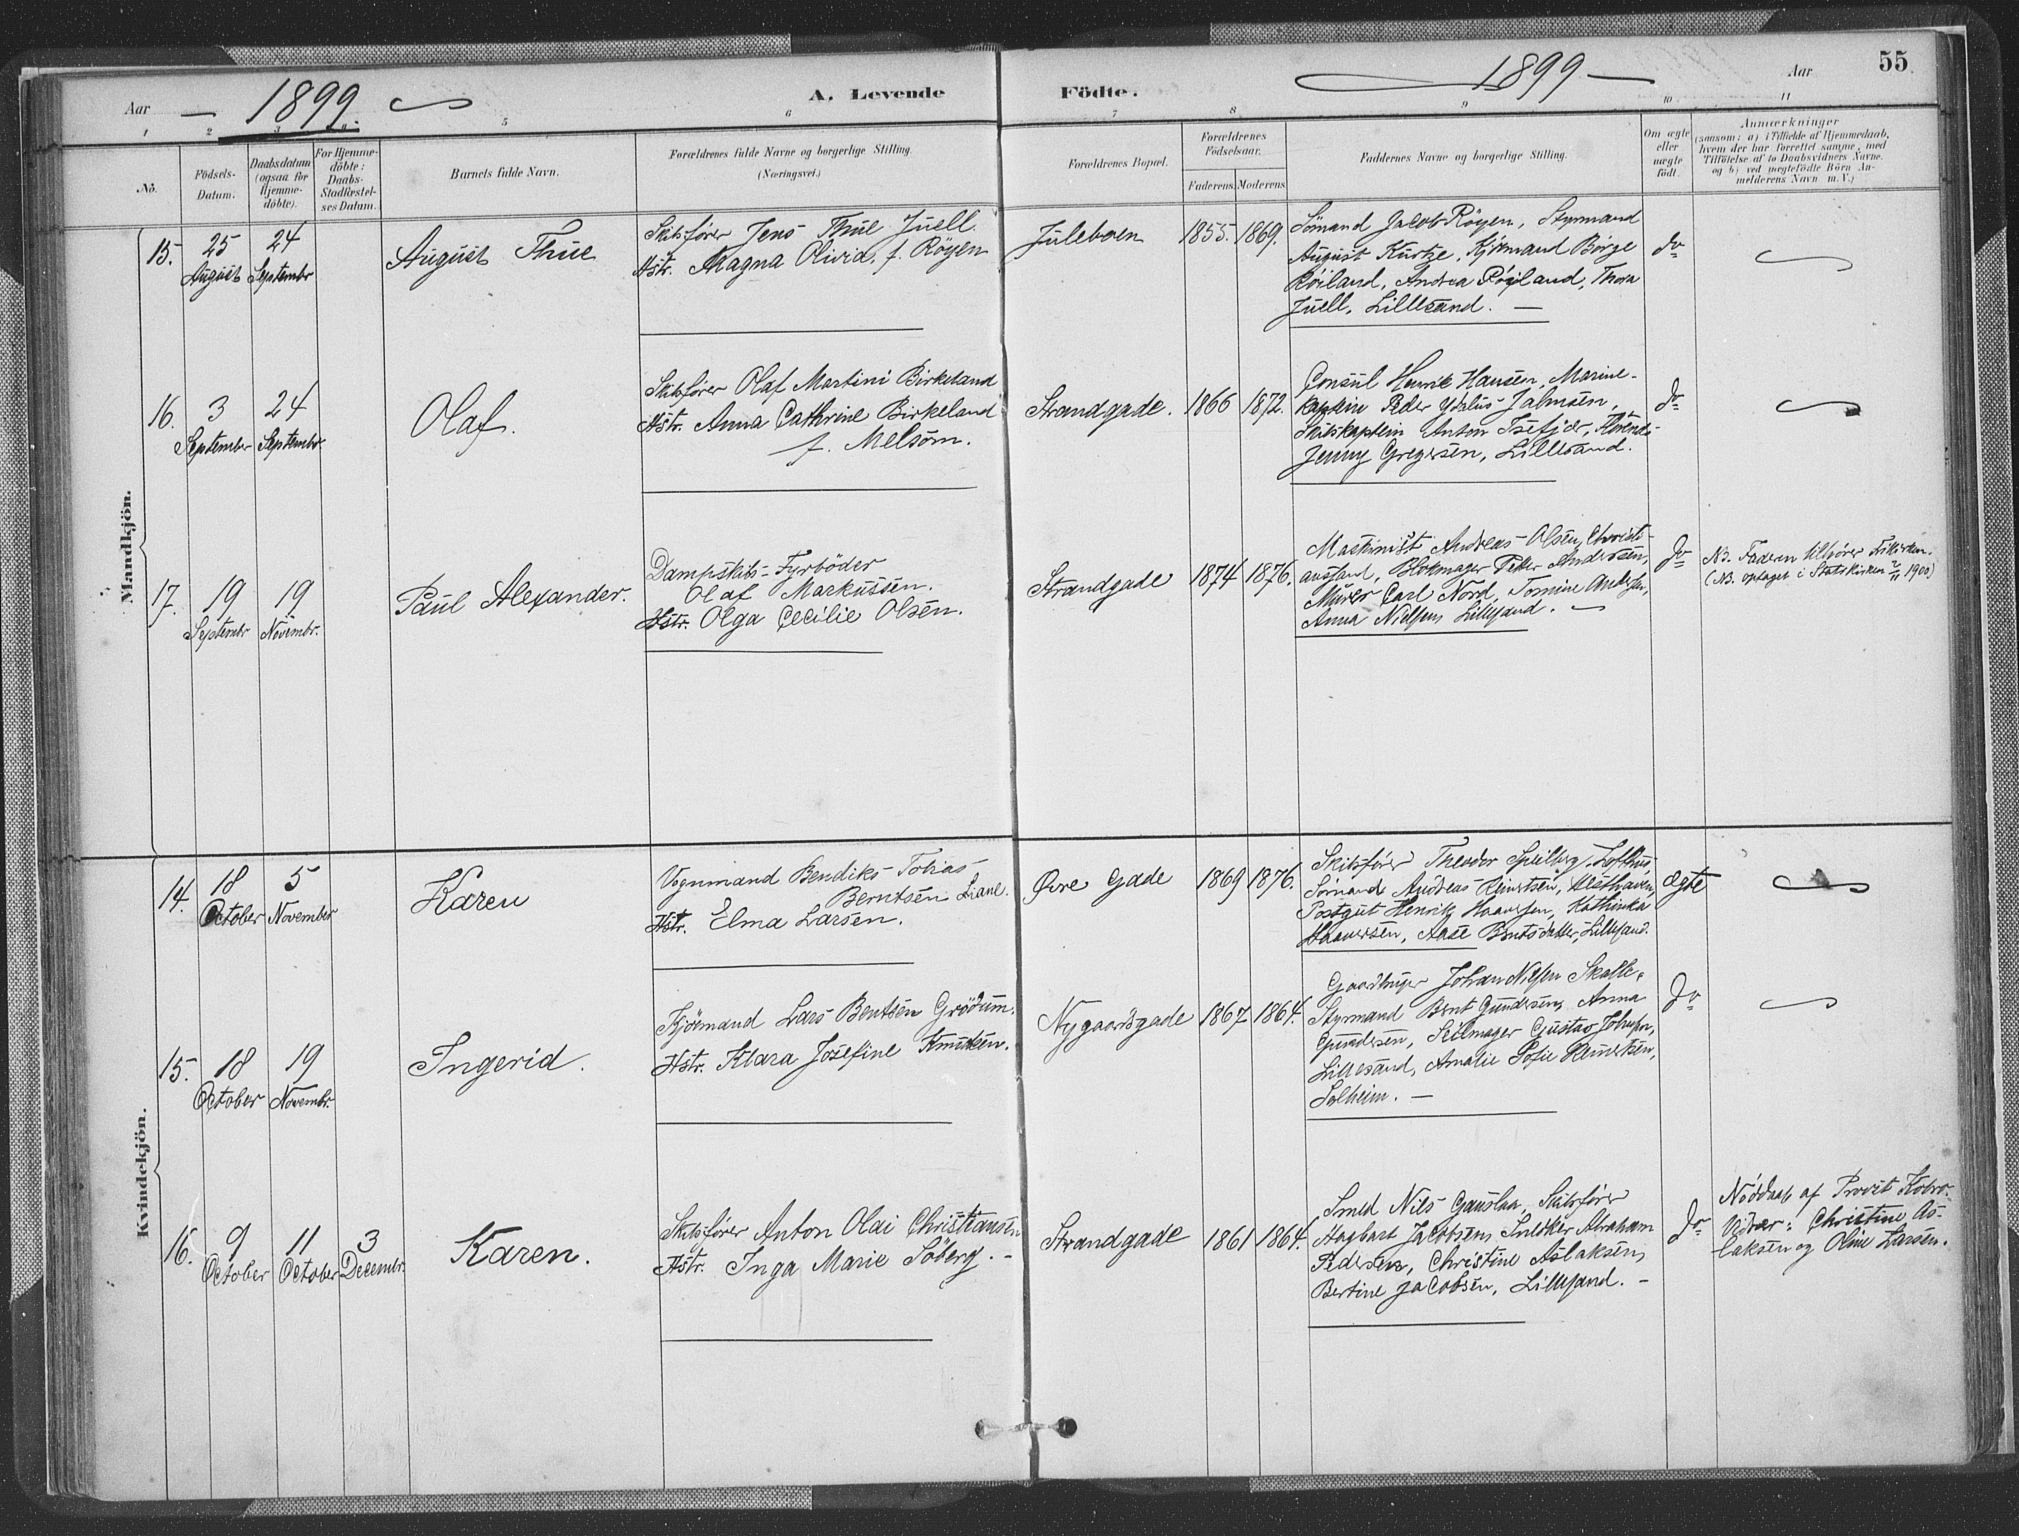 Aar 1899. A. Levende Födte. 1899 Aar 55
1 2 3 4. 5 6 7 8 9 10 11
No. Födsels-Datum. Daabsdatum (ogsaa for Hjemme-döbte). For Hjemme-döbte: Daabs-Stadfæstel-ses Datum. Barnets fulde Navn. Forældrenes fulde Navne og borgerlige Stilling. (Næringsvei.) Forældrenes Bopæl. Forældrenes Födselsaar. Faderens. Moderens. Faddernes Navne og borgerlige Stilling. Om ægte eller uægte födt. Anmærkninger
(saasom: a) i Tilfælde af Hjemmedaab,
hvem der har forrettet samme, med
Tilföielse af to Daabsvidners Navne.
og b) ved uægtefödte Börn An-
melderens Navn m. V.)
Mandkjön.
15. 25 August 24 Septembr August Thue
Skibsfører Jens Thue Juell.
Hstr. Magna Olivia. f. Røyen
Juleboen 1855. 1869.
Sømand Jacob Røyen, Styrmand
August Kurtze, Kjörmand Børge
Røiland, Andrea Røiland, Thora
Juell, Lillesand. —
do
16. 3 September 24 Septembr. Olaf.
Skibsfører Olaf Martini Birkeland
Hstr. Anna Cathrine Birkeland
f. Melsom.
Strandgade. 1866 1872.
Consul Henrik Hansen, Marine-
kaptein Peder Jalmsen,
Skibskaptein Anton
Jenny Gregersen, Lillesand.
do
17. 19 Septembr 19 Novembr. Paul Alexander.
Dampskibs-Fyrböder
Olaf Markussen.
Hstr. Olga Cecilie Olsen.
Strandgade 1874 1876.
Maskinist Andreas Olsen, Christi-
ansand, Blokmager Peter Andersen,
Murer Carl Nord, Tomine Andersen,
Anna Nielsen Lillesand. —
do
NB. Faderen tilhører Frikirken.
(NB. optaget i Statskirken 1900)
Kvindekjön.
14. 18 October 5 November Karen
Vognmand Bendiks Tobias
Berntsen Liane.
Hstr. Elma Larsen.
Øvre Gade 1869 1876.
Skibsfører Theodor Lofthus,
Sømand Andreas Reinertsen, Vesthaven,
Postbud Henrik Haaversen, Kathinka
Haaversen, Aase Berntsdatter, Lillesand.
ægte
15. 18 October 19 Novembr. Ingerid.
Kjörmand Lars Bentsen Grödum.
Hstr. Klara Josefine Knutsen.
Nygaardsgade 1867 1864.
Gaardbruger Johan Nilsen
Styrmand Bernt Gundersen, Anna
Gundersen, Seilmager Gustav Johnsen,
Lillesand, Amalie Sofie Reinertsen,
Solheim. —
do
16. 9 October 11 October 3 Decembr. Karen.
Skibsfører Anton Olai Christiansen
Hstr. Inga Marie Söberg. —
Strandgade 1861 1864.
Smed Nils Gauslaa, Skibsfører
Hagbart Jacobsen, Snedker Abraham
Pedersen, Christine Aslaksen,
Bertine Jacobsen, Lillesand. —
do
Nöddaab af Provst Kobro.
Vidner: Christine As-
laksen og Oline Larsen.